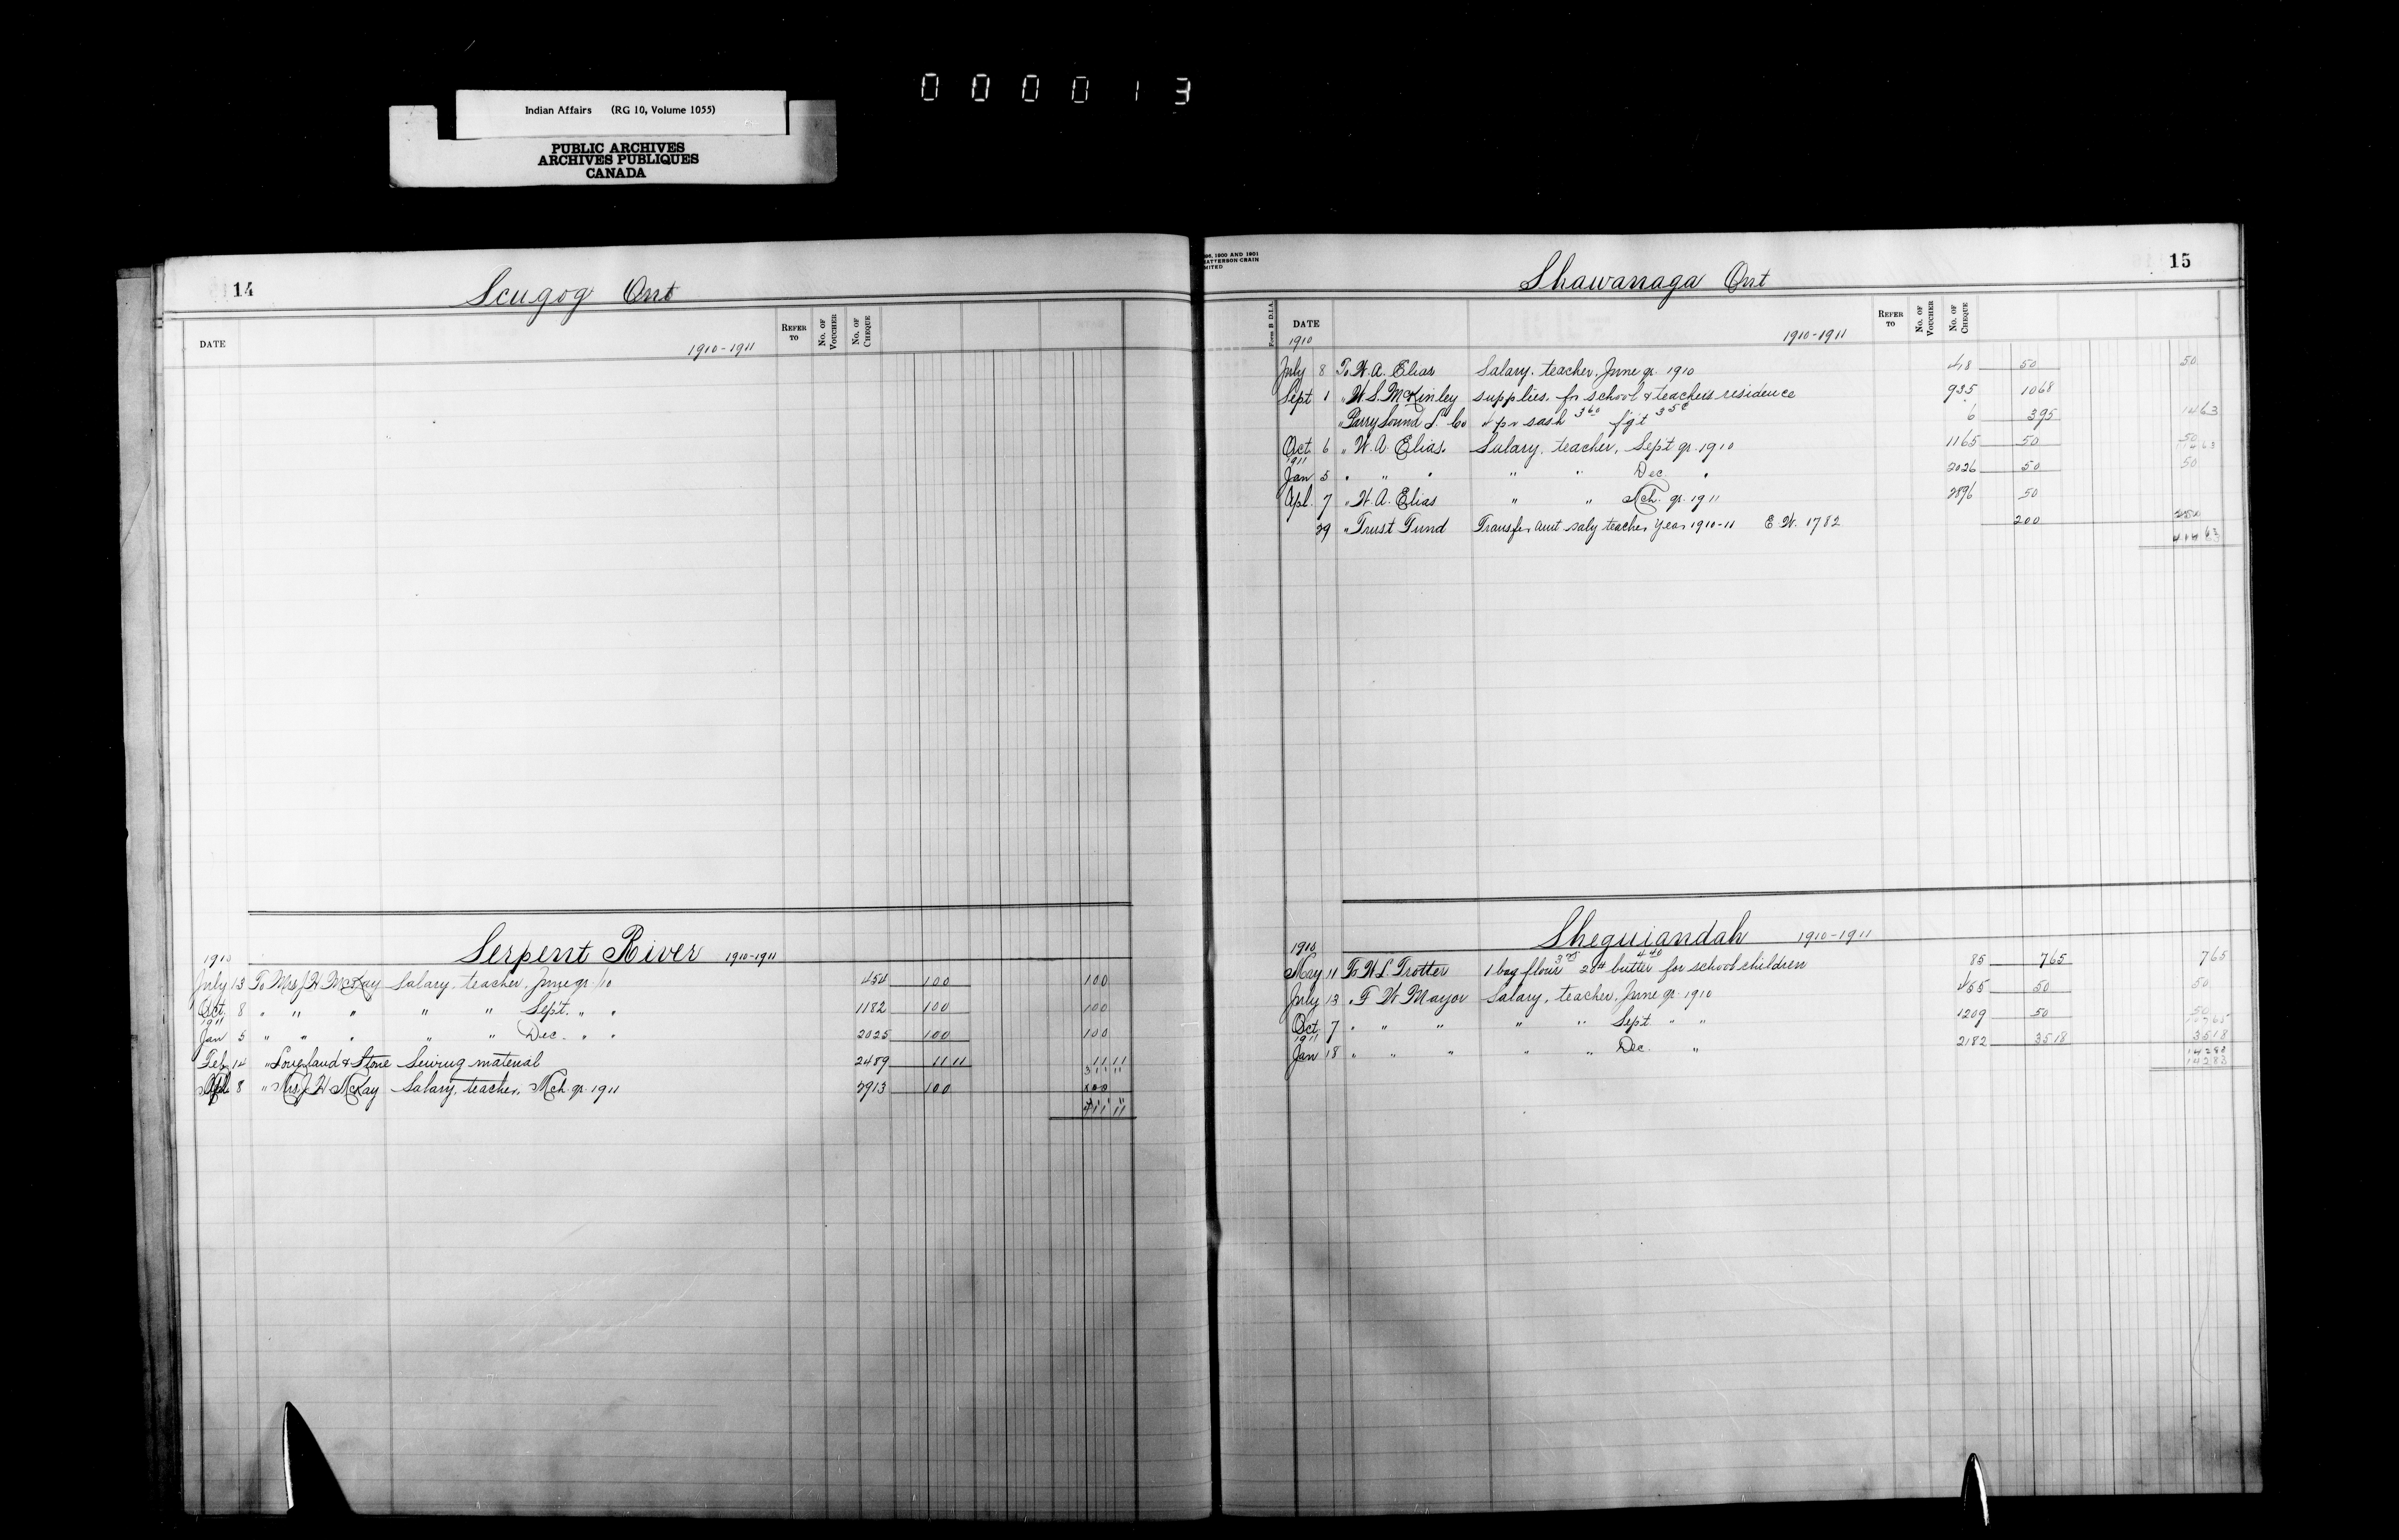 000013
Indian Affairs (RG 10, Volume 1055)
PUBLIC ARCHIVES
ARCHIVES PUBLIQUES
CANADA
14
Scugog Ont
DATE
1910-1911
REFER TO
NO. OF VOUCHER
NO. OF CHEQUE
Serpent River 1910-1911
1910
July 13 To Mrs J H McKay Salary, teacher, June qr /10 450 100 100
Oct 8 " " " " " Sept. " " 1182 100 100
1911
Jan 5 " " " " " Dec. " " 2025 100 100
Feb 14 " & Stone Sewing material 2489 11 11 11 11
311 11
Apl 8 " Mrs J H McKay Salary, teacher, Mch qr 1911 2913 100 100
411 11
15
Shawanaga Ont
Form B D.I.A.
DATE
1910
1910-1911
REFER TO
NO. OF VOUCHER
NO. OF CHEQUE
July 8 To W. A. Elias Salary, teacher, June qr 1910 418 50 50
Sept 1 " W. S. McKinley supplies for school & teachers residence 935 10 68
" Parry Sound L. Co 4 pr sash 3 60 fgt 35c 6 3 95 14 63
Oct 6 " W. A. Elias. Salary, teacher, Sept qr 1910 1165 50 50
1911
Jan 5 " " " " " Dec " 2026 50 50
Apl. 7 " W. A. Elias " " Mch. qr. 1911 2896 50
29 " Trust Fund Transfer amt saly teacher year 1910-11 E W. 1782 200
414 63
Sheguiandah 1910-1911
1910
May 11 To W L. Trotter 1 bag flour 20# butter 4 40 for school children 85 7 65 7 65
July 13 " F W Mayor Salary, teacher, June qr 1910 455 50 50
Oct 7 " " " " " Sept " " 1209 50 50
107 65
1911
Jan 18 " " " " " Dec. " 2182 35 18 35 18
142 83
142 83